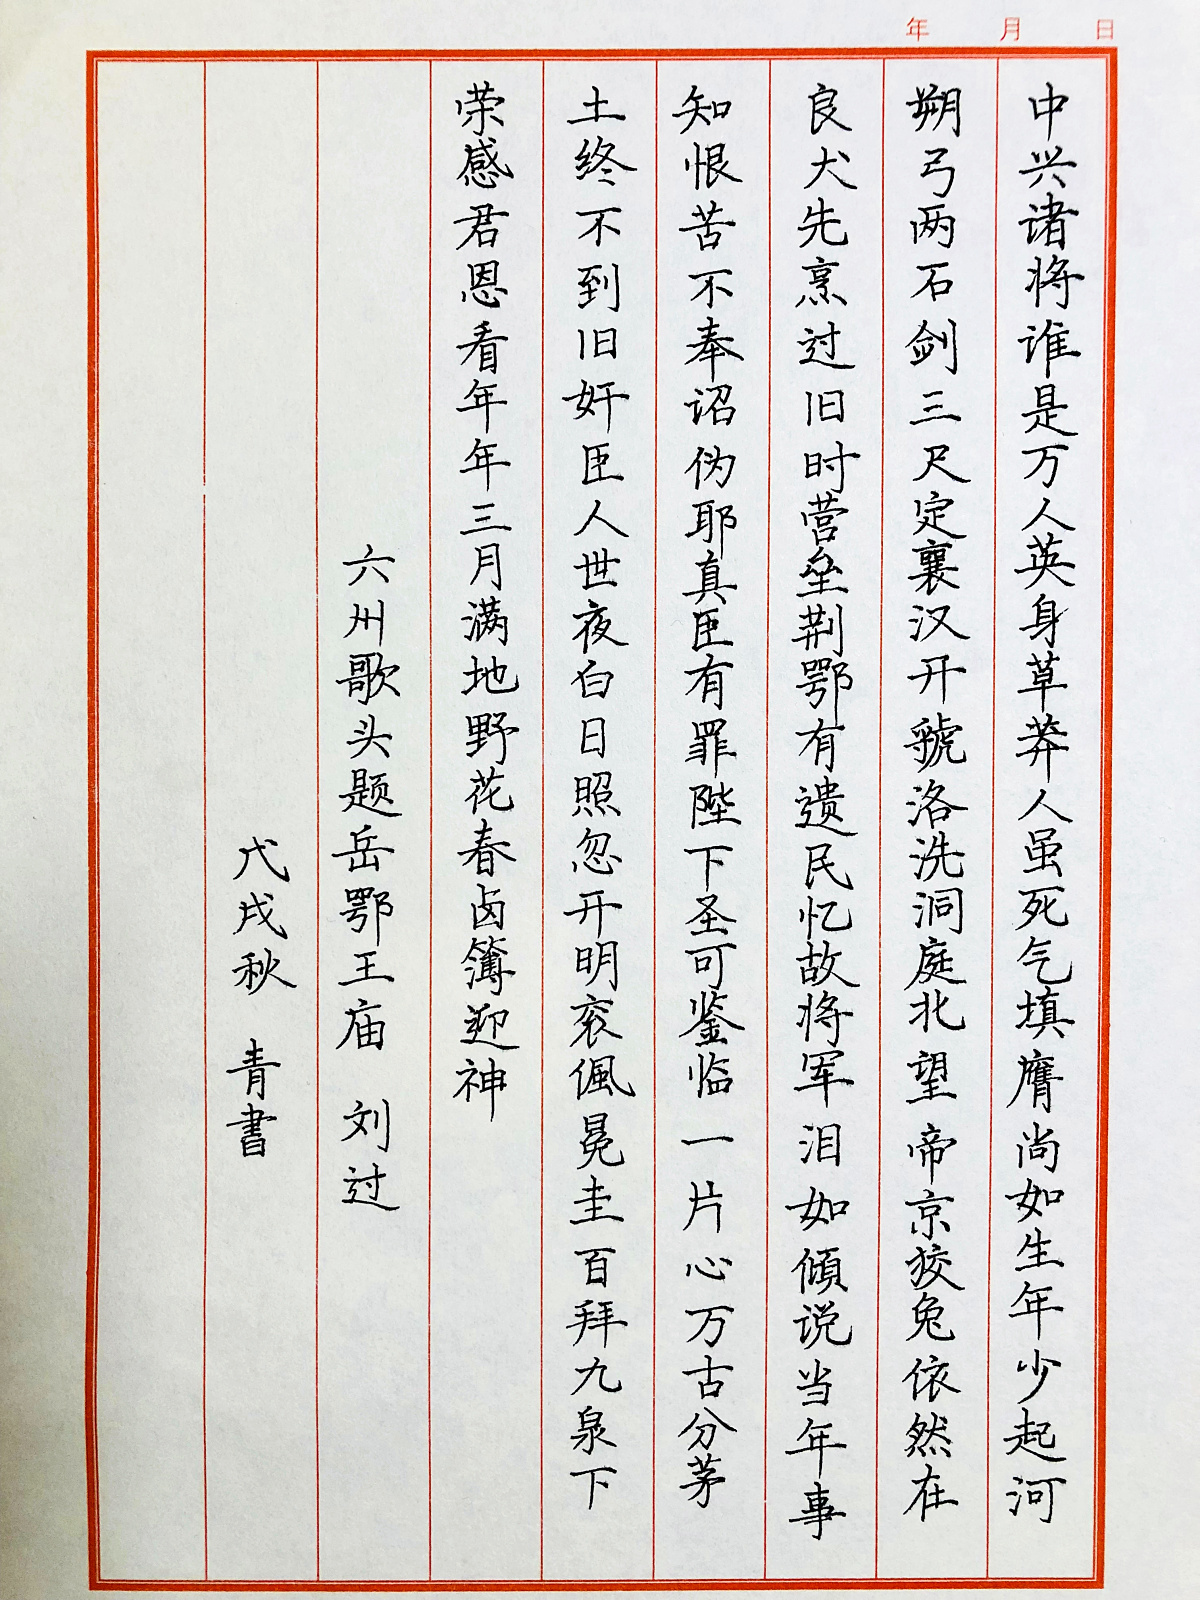 年 月 日
中兴诸将谁是万人英身草莽人虽死气填膺尚如生年少起河
朔弓两石剑三尺定襄汉开虢洛洗洞庭北望帝京狡兔依然在
良犬先烹过旧时营垒荆鄂有遗民忆故将军泪如倾说当年事
知恨苦不奉诏伪耶真臣有罪陛下圣可鉴临一片心万古分茅
土终不到旧奸臣人世夜白日照忽开明衮佩冕圭百拜九泉下
荣感君恩看年年三月满地野花春卤簿迎神
六州歌头题岳鄂王庙 刘过
戊戌秋 青書